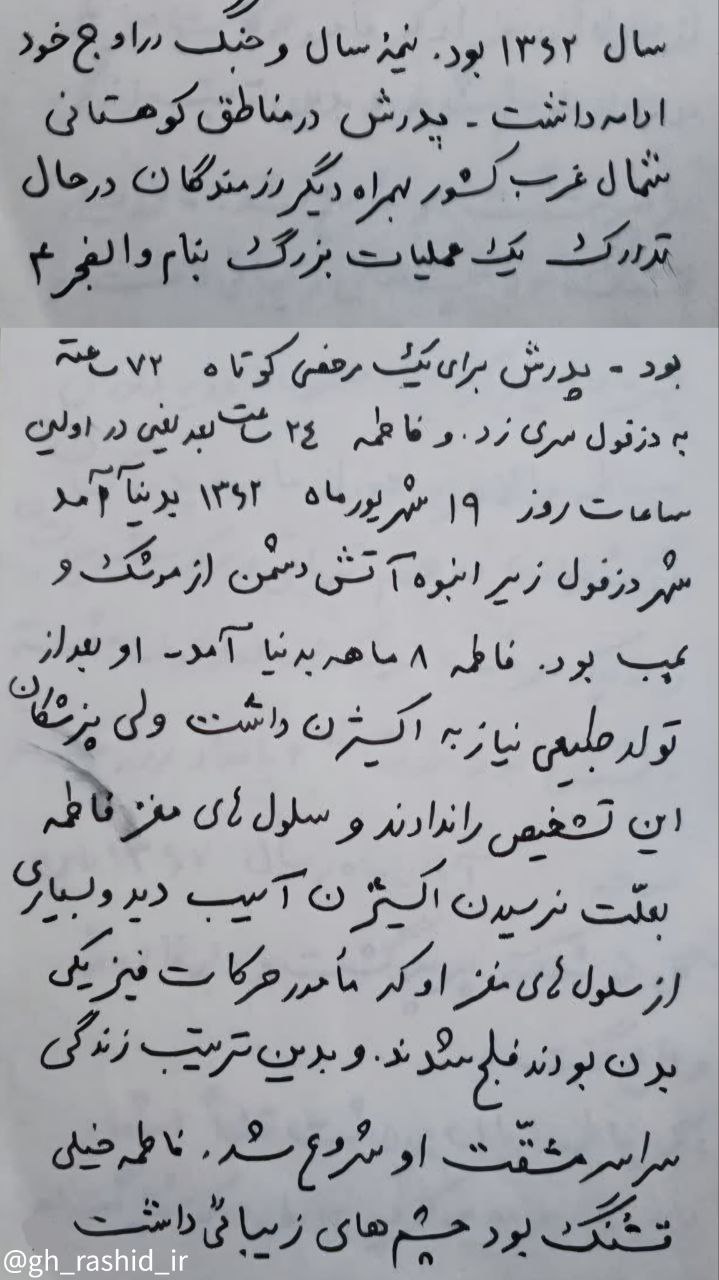 سال ۱۳۶۲ بود. نیمۀ سال و جنگ در اوج خود
ادامه داشت - پدرش در مناطق کوهستانی
شمال غرب کشور بهمراه دیگر رزمندگان در حال
تدارک یک عملیات بزرگ بنام والفجر ۴
بود - پدرش برای یک مرخصی کوتاه ۷۲ ساعته
به دزفول سری زد. و فاطمه ۲٤ ساعت بعد یعنی در اولین
ساعات روز ۱۹ شهریور ماه ۱۳۶۲ بدنیا آمد
شهر دزفول زیر انبوه آتش دشمن از موشک و
بمب بود. فاطمه ۸ ماهه به دنیا آمد - او بعد از
تولد طبیعی نیاز به اکسیژن داشت ولی پزشکان
این تشخیص را ندادند و سلول های مغز فاطمه
بعلّت نرسیدن اکسیژن آسیب دید و بسیاری
از سلول های مغز او که مأمور حرکات فیزیکی
بدن بودند فلج شدند. و بدین ترتیب زندگی
سراسر مشقّت او شروع شد. فاطمه خیلی
قشنگ بود چشم های زیبائی داشت
@gh_rashid_ir